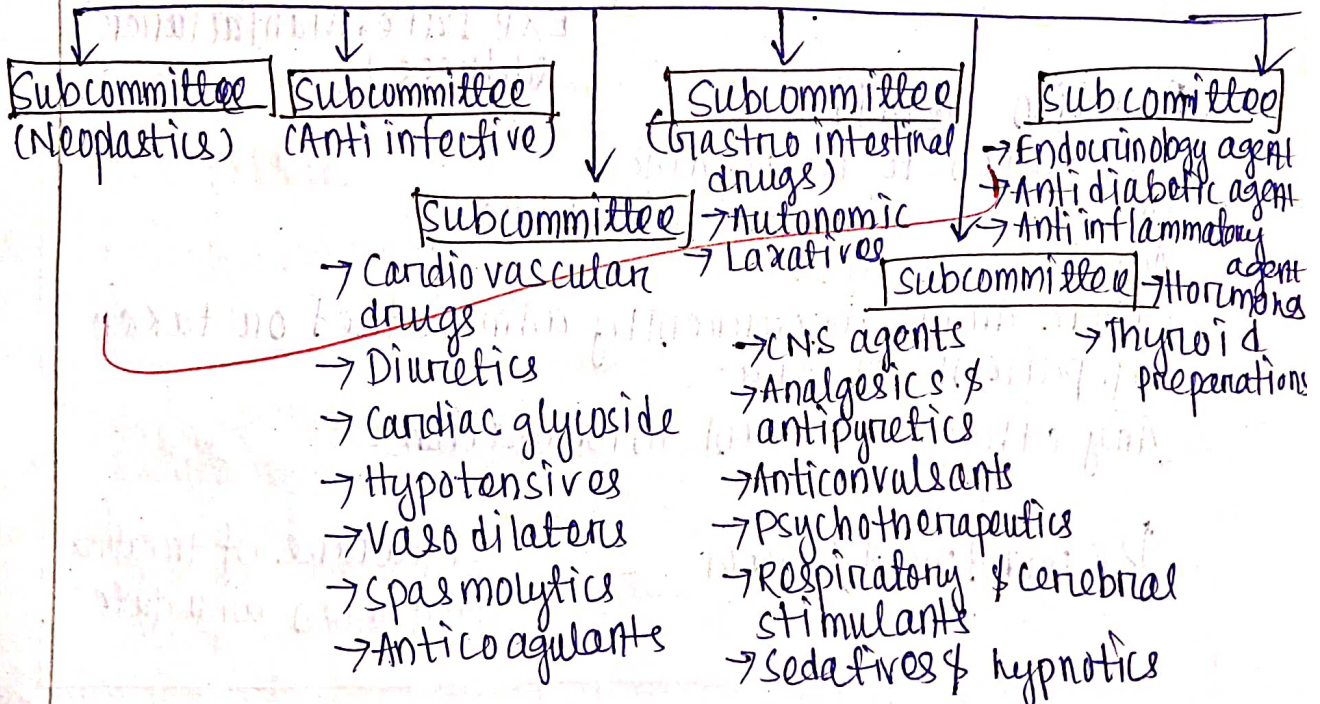 Subcommittee
(Neoplastics)
Subcommittee
(Anti infective)
Subcommittee
→ Cardio vascular
drugs
→ Diuretics
→ Cardiac glycoside
→ Hypotensives
→ Vaso dilators
→ Spasmolytics
→ Anticoagulants
Subcommittee
(Gastro intestinal
drugs)
→ Autonomic
→ Laxatives
Subcommittee
→ C.N.S agents
→ Analgesics &
antipyretics
→ Anticonvulsants
→ Psychotherapeutics
→ Respiratory & cerebral
stimulants
→ Sedatives & hypnotics
Subcommittee
→ Endocrinology agent
→ Anti diabetic agent
→ Anti inflammatory
agent
→ Hormones
→ Thyroid
preparations